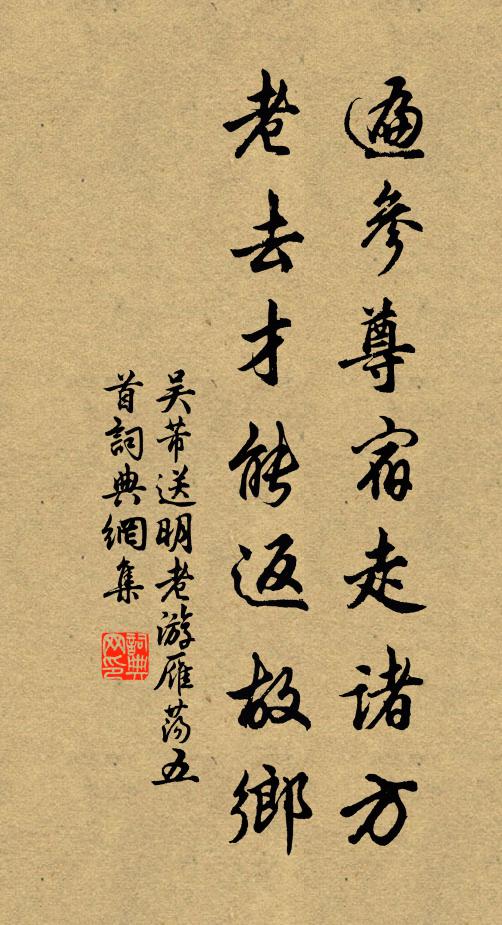 遍參尊宿走諸方
老去才能返故鄉
吴芾送明老游雁蕩五
首詞典網集
詞典
网印